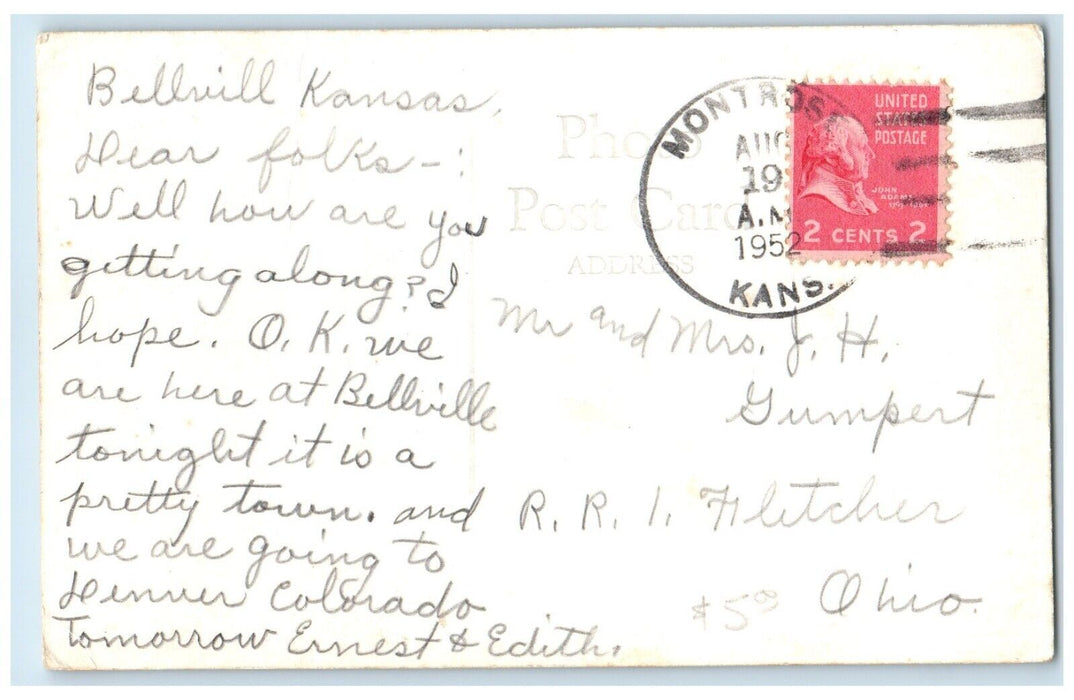 Bellvill Kansas.
Dear folks-:
Well how are you
getting along? I
hope. O.K. we
are here at Bellville
tonight it is a
pretty town. and
we are going to
Denver Colorado
Tomorrow Ernest & Edith.
Photo
Post Card
ADDRESS
MONTROSE
AUG
19
A.M.
1952
KANS.
UNITED
STATES
POSTAGE
JOHN
ADAMS
2 CENTS 2
Mr and Mrs. J. H.
Gumpert
R. R. 1. Fletcher
Ohio.
$5.00